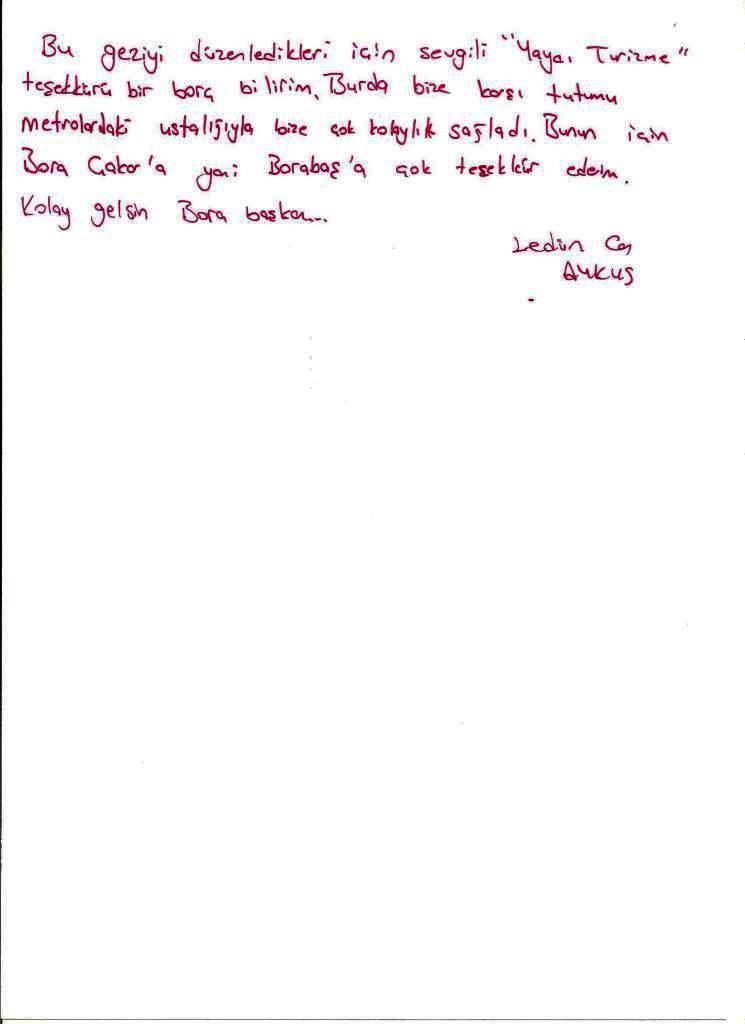 Bu geziyi düzenledikleri için sevgili "Yaya, Turizme"
teşekkürü bir borç bilirim. Burda bize karşı tutumu
metrolardaki ustalığıyla bize çok kolaylık sağladı. Bunun için
Bora Çakar'a yani Borabaş'a çok teşekkür ederim.
Kolay gelsin Bora başkan...
AYKUŞ